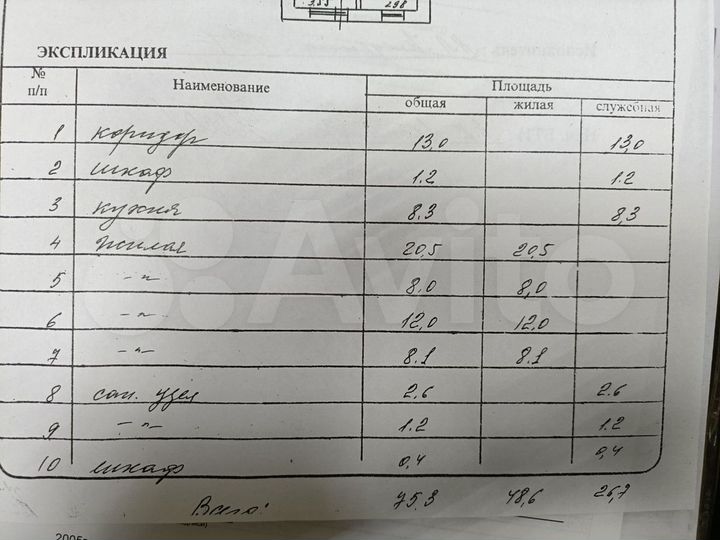 298
ЭКСПЛИКАЦИЯ
№ п/п Наименование Площадь
общая жилая служебная
1 коридор 13,0 13,0
2 шкаф 1.2 1.2
3 кухня 8.3 8,3
4 жилая 20,5 20,5
5 -"- 8.0 8,0
6 -"- 12,0 12,0
7 -"- 8.1 8.1
8 сан. узел 2.6 2.6
9 -"- 1.2 1.2
10 шкаф 0,4 0,4
Всего: 75.3 48,6 26,7
2005г
Avito